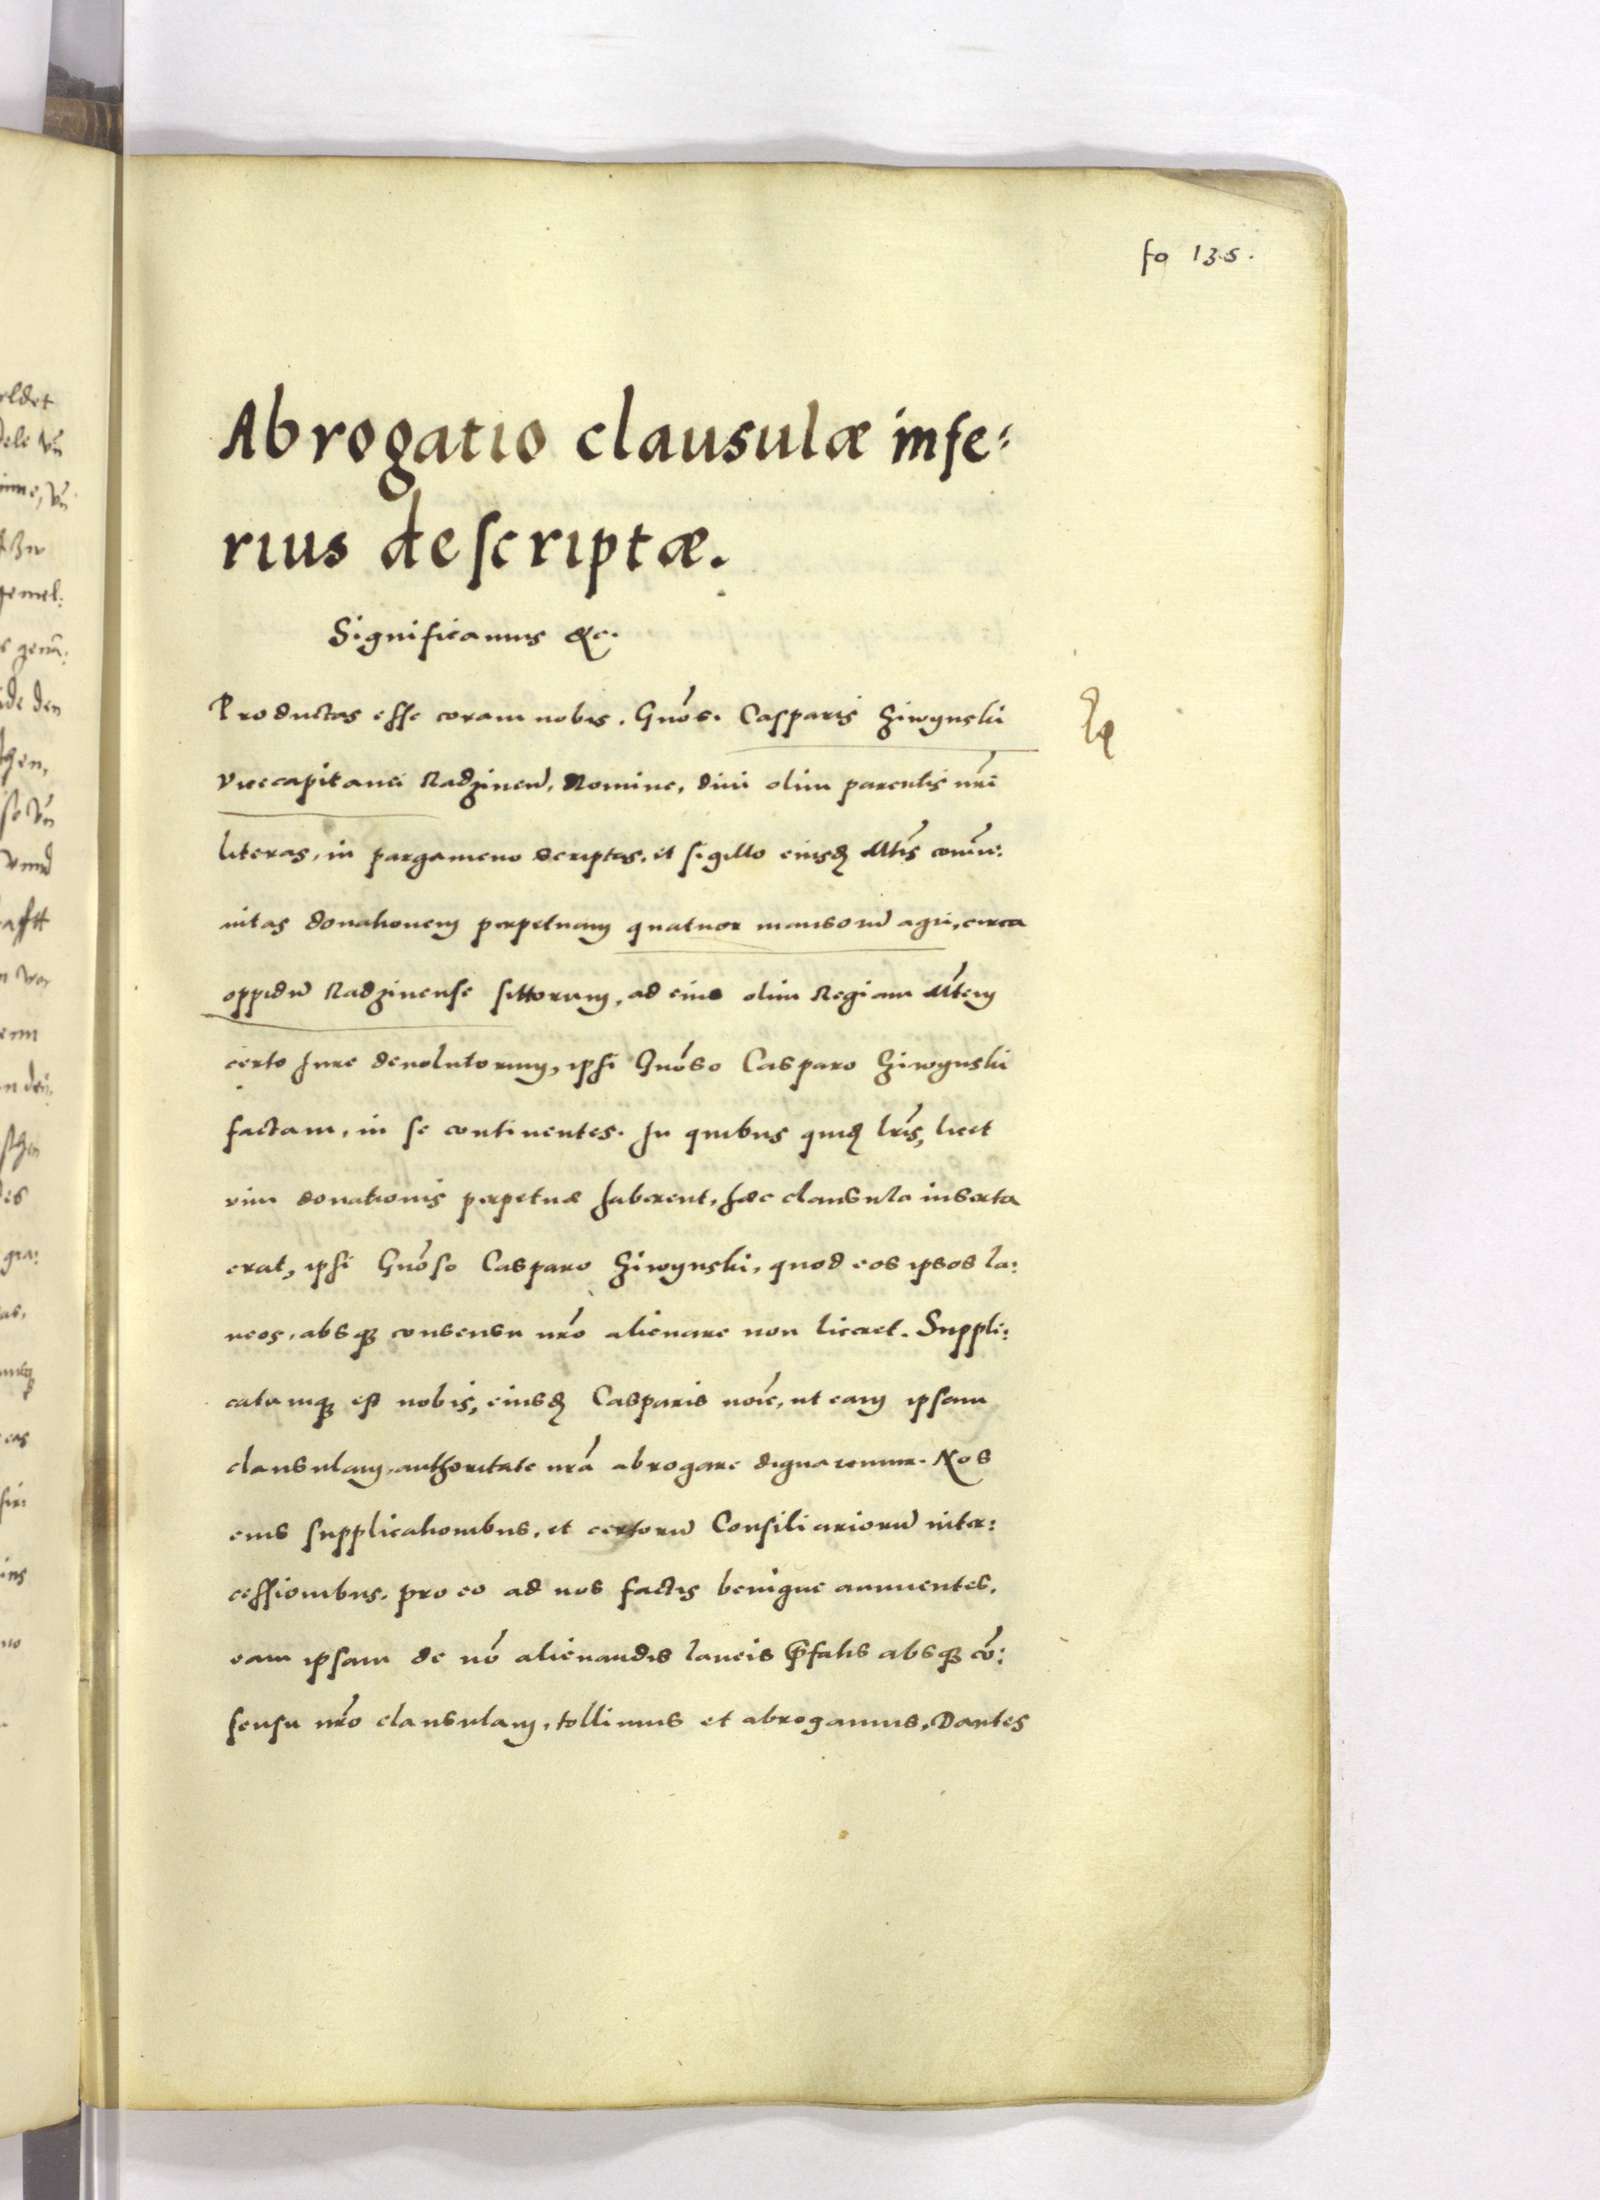 fo 135.
Abrogatio clausulæ infe:
rius descriptæ.
Significamus &c.
Productas esse coram nobis. Gnōs. Casparis Ziwynski
vicecapitanei Radzinen̄, Nomine, divi olim parentis nr̄i
literas, in pargameno scriptas, et sigillo eiusdꝫ Mt̄is commu:
nitas donationem perpetuam quatuor mansorū agri, circa
oppidū Radzinense sittorum, ad eius olim Regiam Mt̄em
certo Jure devolutorum, ipsi Gnōso Casparo Ziwynski
factam, in se continentes. In quibus quidꝫ lr̄is, licet
vim donationis perpetuæ haberent, hæc clausula inserta
erat, ipsi Gnōso Casparo Ziwynski, quod eos ipsos la:
neos, absqꝫ consensu nr̄o alienare non liceret. Suppli:
catumqꝫ est nobis, eiusdꝫ Casparis noīe, ut eam ipsam
clausulam, authoritate nr̄a abrogare dignaremur. Nos
eius supplicationibus, et certorū Consiliariorū inter:
cessionibus, pro eo ad nos factis benigne annuentes,
eam ipsam de nō alienandis laneis p̄fatis absqꝫ cō:
sensu nr̄o clausulam, tollimus et abrogamus, Dantes